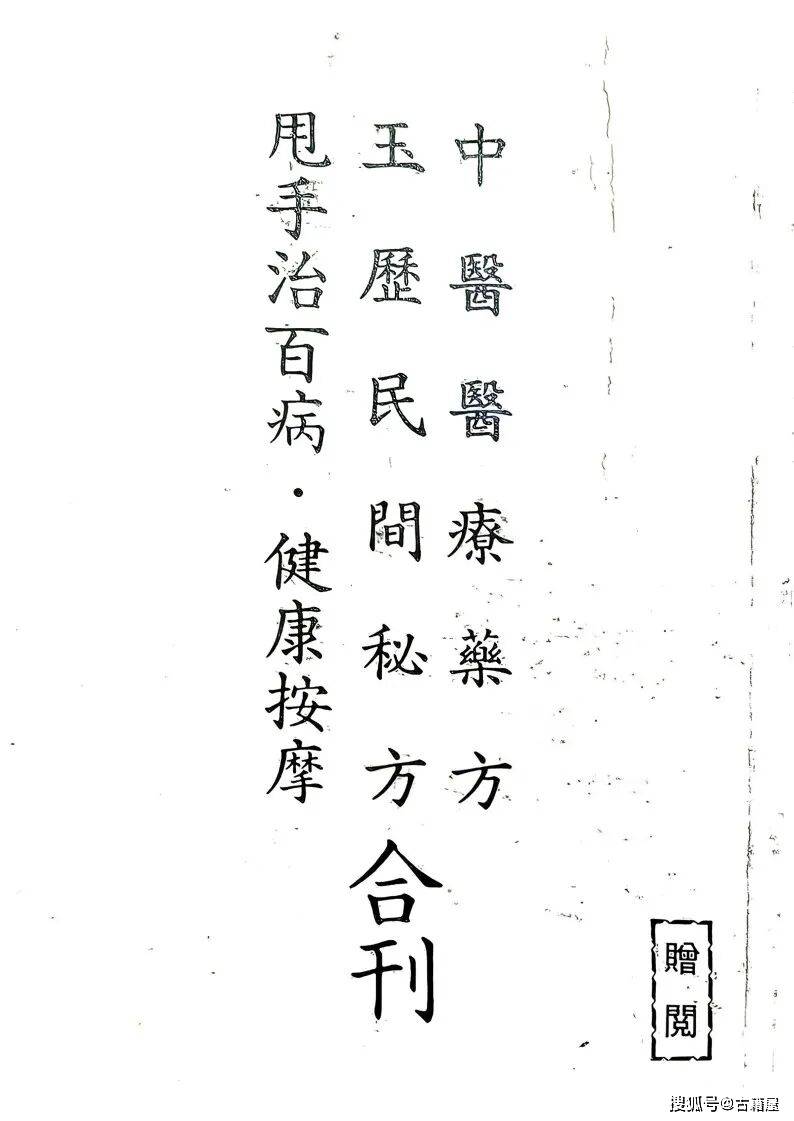 中醫醫療藥方
玉歷民間秘方
甩手治百病·健康按摩
合刊
贈閱
搜狐号@古籍屋